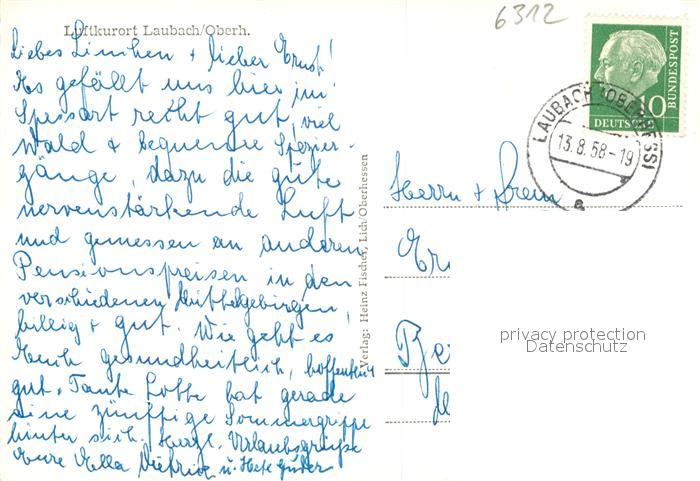 6312
Luftkurort Laubach/Oberh.
Liebes Linchen + lieber Ernst!
Es gefällt uns hier im
Spessart recht gut, viel
Wald & bequeme Spazier-
gänge, dazu die gute
nervenstärkende Luft
und gemessen an anderen
Pensionspreisen in den
verschiedenen Mittelgebirgen,
billig + gut. Wie geht es
Euch gesundheitlich, hoffentlich
gut. Tante Lotte hat gerade
eine zünftige Sommergrippe
hinter sich. Herzl. Urlaubsgrüße
Eure Ella
u.
Verlag: Heinz Fischer, Lich/Oberhessen
10
DEUTSCHE BUNDESPOST
LAUBACH (OBERHESS)
13.8.58-19
a
Herrn + Frau
privacy protection
Datenschutz